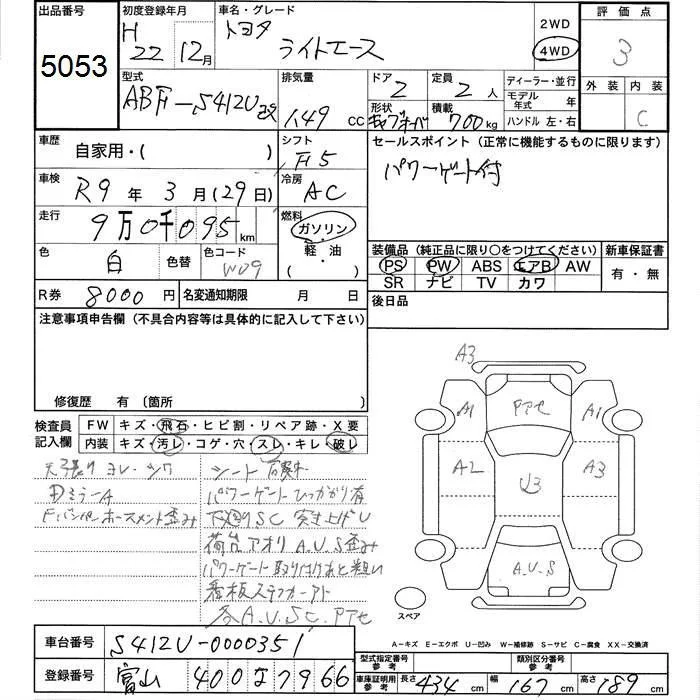 出品番号
5053
初度登録年月
H 22 12月
車名・グレード
トヨタ ライトエース
2WD
4WD
評価点
3
外装 内装
C
型式
ABF-S412U改
排気量
1.49 cc
ドア
2
定員
2 人
形状
積載
700kg
ディーラー・並行
モデル年式 年
ハンドル 左・右
車歴
自家用・( )
シフト
F5
セールスポイント(正常に機能するものに限ります)
パワーゲート付
車検
R9年3月(29日)
冷房
AC
走行
9万0千095km
燃料
ガソリン
軽・油
( ・ )
色
白
色替
色コード
W09
装備品(純正品に限り○をつけてください)
PS PW ABS エアB AW
SR ナビ TV カワ
新車保証書
有・無
R券 8000円
名変通知期限 月 日
後日品
注意事項申告欄(不具合内容等は具体的に記入して下さい)
修復歴 有(箇所
検査員記入欄
FW キズ・飛石・ヒビ割・リペア跡・X要
内装 キズ・汚レ・コゲ・穴・スレ・キレ・破レ
天張り ヨレ・シワ
DミラーA
シート
パワーゲートひっかかり有
下廻りSC 突き上げU
荷台アオリ A.U.S歪み
パワーゲート取り付けあと粗い
看板ステッカーアト
各A.U.SC.Pアセ
A3
A1
Pアセ
A1
A2
U3
A3
A.U.S
スペア
A-キズ E-エクボ U-凹み W-補修跡 S-サビ C-腐食 XX-交換済
車台番号
S412U-0000351
登録番号
富山 400な7966
型式指定番号
参考
類別区分番号
参考
車庫証明用
参考
長さ 434 cm
幅 167 cm
高さ 189 cm